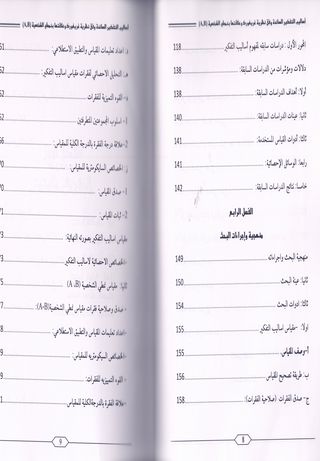 أساليب التفكير السائدة وفق نظرية ستيرنبرغ وعلاقتها بنمطي الشخصية (A,B)
المحور الأول: دراسات سابقة لمفهوم أساليب التفكير 118
دلالات ومؤشرات من الدراسات السابقة: 138
أولا: أهداف الدراسات السابقة: 138
ثانيا: عينات الدراسات السابقة: 140
ثالثا: أدوات القياس المستخدمة: 141
رابعا: الوسائل الإحصائية 141
خامسا: نتائج الدراسات السابقة: 142
الفصل الرابع
منهجية وإجراءات البحث
منهجية البحث واجراءاته 149
ثانيا: عينة البحث 150
ثالثا: ادوات البحث 154
اولا: -مقياس أساليب التفكير 155
أ-وصف المقياس. 155
ب- طريقة تصحيح المقياس 156
ج- صدق الفقرات (صلاحية الفقرات): 158
8
د- اعداد تعليمات المقياس والتطبيق الاستطلاعي:
هـ- التحليل الاحصائي لفقرات مقياس اساليب التفكير.
و- القوة التميزية للفقرات
1- اسلوب المجموعتين المتطرفتين
2- علاقة درجة الفقرة بالدرجة الكلية للمقياس.
ز- الخصائص السيكومترية للمقياس:
1- صدق المقياس:
2- ثبات المقياس:
مقياس اساليب التفكير بصورته النهائية:
الخصائص الاحصائية لاساليب التفكير.
ثانيا: مقياس نمطي الشخصية (A ،B)
- صدق وصلاحية فقرات مقياس نمطي الشخصية (A-B):
-اعداد تعليمات المقياس والتطبيق الاستطلاعي:
-الخصائص السيكومترية للمقياس:
- القوة التميزية للفقرات:
-علاقة الفقرة بالدرجة الكلية للمقياس
9